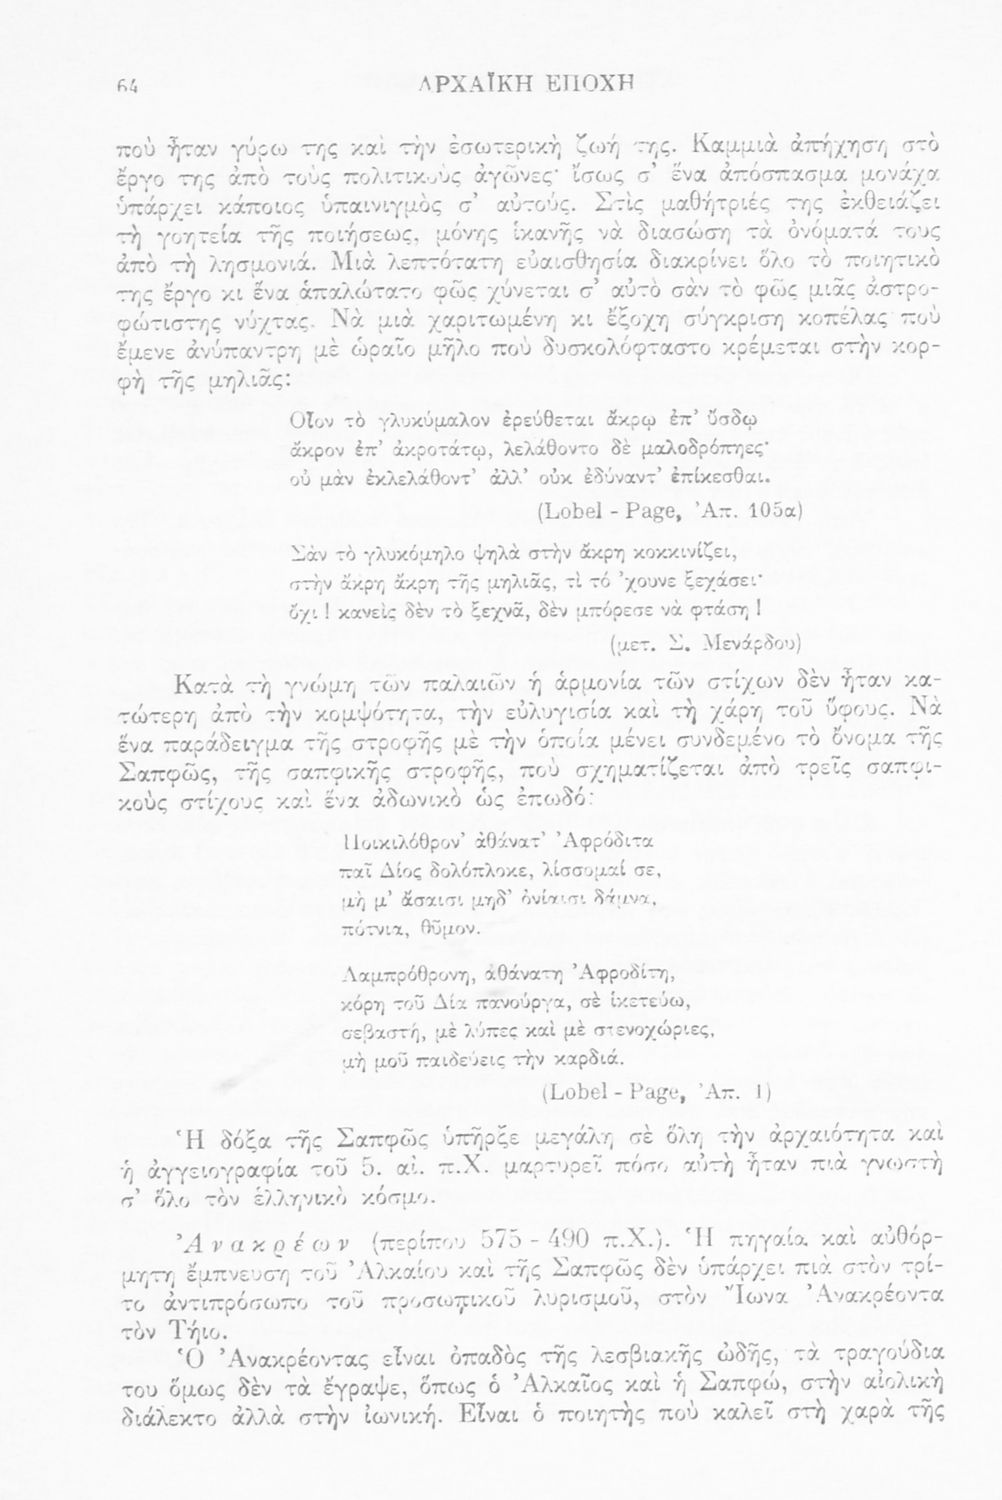 64
ΑΡΧΑΪΚΗ ΕΠΟΧΗ
ποὺ ἦταν γύρω της καὶ τὴν ἐσωτερικὴ ζωή της. Καμμιὰ ἀπήχηση στὸ
ἔργο της ἀπὸ τοὺς πολιτικοὺς ἀγῶνες· ἴσως σ’ ἕνα ἀπόσπασμα μονάχα
ὑπάρχει κάποιος ὑπαινιγμὸς σ’ αὐτούς. Στὶς μαθήτριές της ἐκθειάζει
τὴ γοητεία τῆς ποιήσεως, μόνης ἱκανῆς νὰ διασώση τὰ ὀνόματά τους
ἀπὸ τὴ λησμονιά. Μιὰ λεπτότατη εὐαισθησία διακρίνει ὅλο τὸ ποιητικὸ
της ἔργο κι ἕνα ἁπαλώτατο φῶς χύνεται σ’ αὐτὸ σὰν τὸ φῶς μιᾶς ἀστρο-
φώτιστης νύχτας. Νὰ μιὰ χαριτωμένη κι ἔξοχη σύγκριση κοπέλας ποὺ
ἔμενε ἀνύπαντρη μὲ ὡραῖο μῆλο ποὺ δυσκολόφταστο κρέμεται στὴν κορ-
φὴ τῆς μηλιᾶς:
Οἶον τὸ γλυκύμαλον ἐρεύθεται ἄκρῳ ἐπ’ ὔσδῳ
ἄκρον ἐπ’ ἀκροτάτῳ, λελάθοντο δὲ μαλοδρόπηες·
οὐ μὰν ἐκλελάθοντ’ ἀλλ’ οὐκ ἐδύναντ’ ἐπίκεσθαι.
(Lobel - Page, Ἀπ. 105α)
Σὰν τὸ γλυκόμηλο ψηλὰ στὴν ἄκρη κοκκινίζει,
στὴν ἄκρη ἄκρη τῆς μηλιᾶς, τὶ τό ’χουνε ξεχάσει·
ὄχι ! κανεὶς δὲν τὸ ξεχνᾶ, δὲν μπόρεσε νὰ φτάση !
(μετ. Σ. Μενάρδου)
Κατὰ τὴ γνώμη τῶν παλαιῶν ἡ ἁρμονία τῶν στίχων δὲν ἦταν κα-
τώτερη ἀπὸ τὴν κομψότητα, τὴν εὐλυγισία καὶ τὴ χάρη τοῦ ὕφους. Νὰ
ἕνα παράδειγμα τῆς στροφῆς μὲ τὴν ὁποία μένει συνδεμένο τὸ ὄνομα τῆς
Σαπφῶς, τῆς σαπφικῆς στροφῆς, ποὺ σχηματίζεται ἀπὸ τρεῖς σαπφι-
κοὺς στίχους καὶ ἕνα ἀδωνικὸ ὡς ἐπωδό:
Ποικιλόθρον’ ἀθάνατ’ Ἀφρόδιτα
παῖ Δίος δολόπλοκε, λίσσομαί σε,
μὴ μ’ ἄσαισι μηδ’ ὀνίαισι δάμνα,
πότνια, θῦμον.
Λαμπρόθρονη, ἀθάνατη Ἀφροδίτη,
κόρη τοῦ Δία πανούργα, σὲ ἱκετεύω,
σεβαστή, μὲ λύπες καὶ μὲ στενοχώριες,
μὴ μοῦ παιδεύεις τὴν καρδιά.
(Lobel - Page, Ἀπ. 1)
Ἡ δόξα τῆς Σαπφῶς ὑπῆρξε μεγάλη σὲ ὅλη τὴν ἀρχαιότητα καὶ
ἡ ἀγγειογραφία τοῦ 5. αἰ. π.Χ. μαρτυρεῖ πόσο αὐτὴ ἦταν πιὰ γνωστὴ
σ’ ὅλο τὸν ἑλληνικὸ κόσμο.
Ἀνακρέων (περίπου 575 - 490 π.Χ.). Ἡ πηγαία καὶ αὐθόρ-
μητη ἔμπνευση τοῦ Ἀλκαίου καὶ τῆς Σαπφῶς δὲν ὑπάρχει πιὰ στὸν τρί-
το ἀντιπρόσωπο τοῦ προσωπικοῦ λυρισμοῦ, στὸν Ἴωνα Ἀνακρέοντα
τὸν Τήιο.
Ὁ Ἀνακρέοντας εἶναι ὀπαδὸς τῆς λεσβιακῆς ὠδῆς, τὰ τραγούδια
του ὅμως δὲν τὰ ἔγραψε, ὅπως ὁ Ἀλκαῖος καὶ ἡ Σαπφώ, στὴν αἰολικὴ
διάλεκτο ἀλλὰ στὴν ἰωνική. Εἶναι ὁ ποιητὴς ποὺ καλεῖ στὴ χαρὰ τῆς